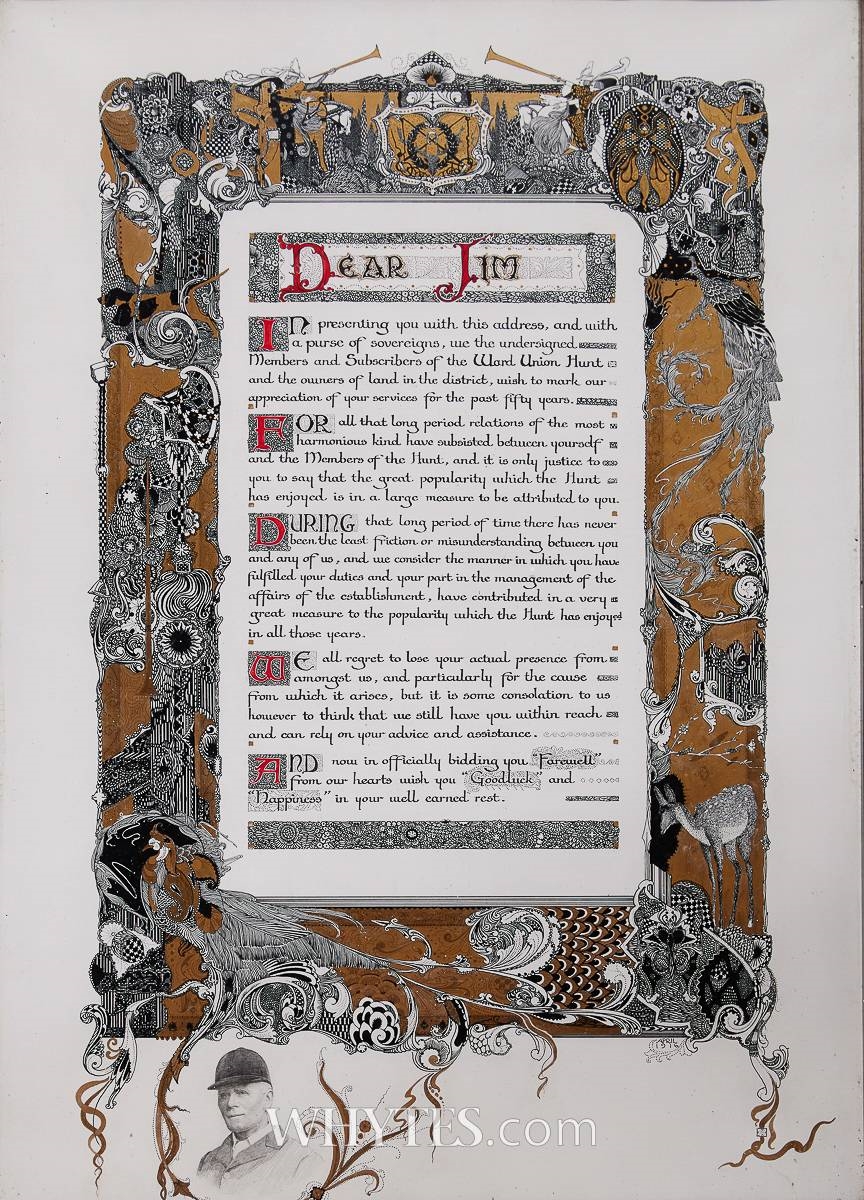 DEAR JIM
IN presenting you with this address, and with
a purse of sovereigns, we the undersigned
Members and Subscribers of the Ward Union Hunt
and the owners of land in the district, wish to mark our
appreciation of your services for the past fifty years.
FOR all that long period relations of the most
harmonious kind have subsisted between yourself
and the Members of the Hunt, and it is only justice to
you to say that the great popularity which the Hunt
has enjoyed is in a large measure to be attributed to you.
DURING that long period of time there has never
been the least friction or misunderstanding between you
and any of us, and we consider the manner in which you have
fulfilled your duties and your part in the management of the
affairs of the establishment, have contributed in a very
great measure to the popularity which the Hunt has enjoyed
in all those years.
WE all regret to lose your actual presence from
amongst us, and particularly for the cause
from which it arises, but it is some consolation to us
however to think that we still have you within reach
and can rely on your advice and assistance.
AND now in officially bidding you "Farewell"
from our hearts wish you "Goodluck" and
"Happiness" in your well earned rest.
APRIL
WHYTES.com